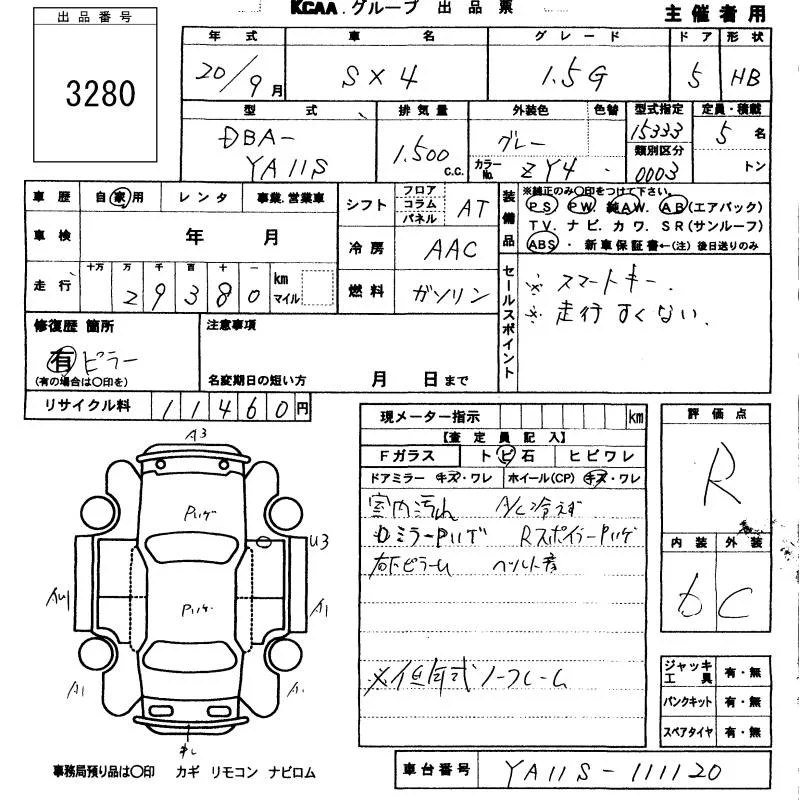 KCAA.グループ 出品票
主催者用
出品番号
3280
年式 車名 グレード ドア 形状
20/9月 SX4 1.5G 5 HB
型式 排気量 外装色 色替 型式指定 定員・積載
DBA-YA11S 1.500 c.c. グレー カラーNo. ZY4 15333 5名
類別区分 0003 トン
車歴 自家用 レンタ 事業.営業車
車検 年 月
走行 十万 万 千 百 十 一 km マイル
29380
シフト フロア コラム パネル AT
冷房 AAC
燃料 ガソリン
装備品
※純正のみ○印をつけて下さい。
PS PW. 純AW. AB(エアバック)
TV. ナビ. カワ. SR(サンルーフ)
ABS・新車保証書←(注)後日送りのみ
セールスポイント
※ スマートキー.
※ 走行すくない.
修復歴 箇所
有 ピラー
(有の場合は○印を)
注意事項
名変期日の短い方 月 日まで
リサイクル料 11460円
現メーター指示 km
【査定員記入】
Fガラス トビ石 ヒビワレ
ドアミラー キズ・ワレ ホイール(CP) キズ・ワレ
室内汚れ A/C冷えず
DミラーPハゲ RスポイラーPハゲ
右下ピラーU
※低年式ノーフレーム
評価点
R
内装 外装
D C
ジャッキ工具 有・無
パンクキット 有・無
スペアタイヤ 有・無
A3
Pハゲ
U3
Pハゲ
A1
A1
事務局預り品は○印 カギ リモコン ナビロム
車台番号 YA11S-111120